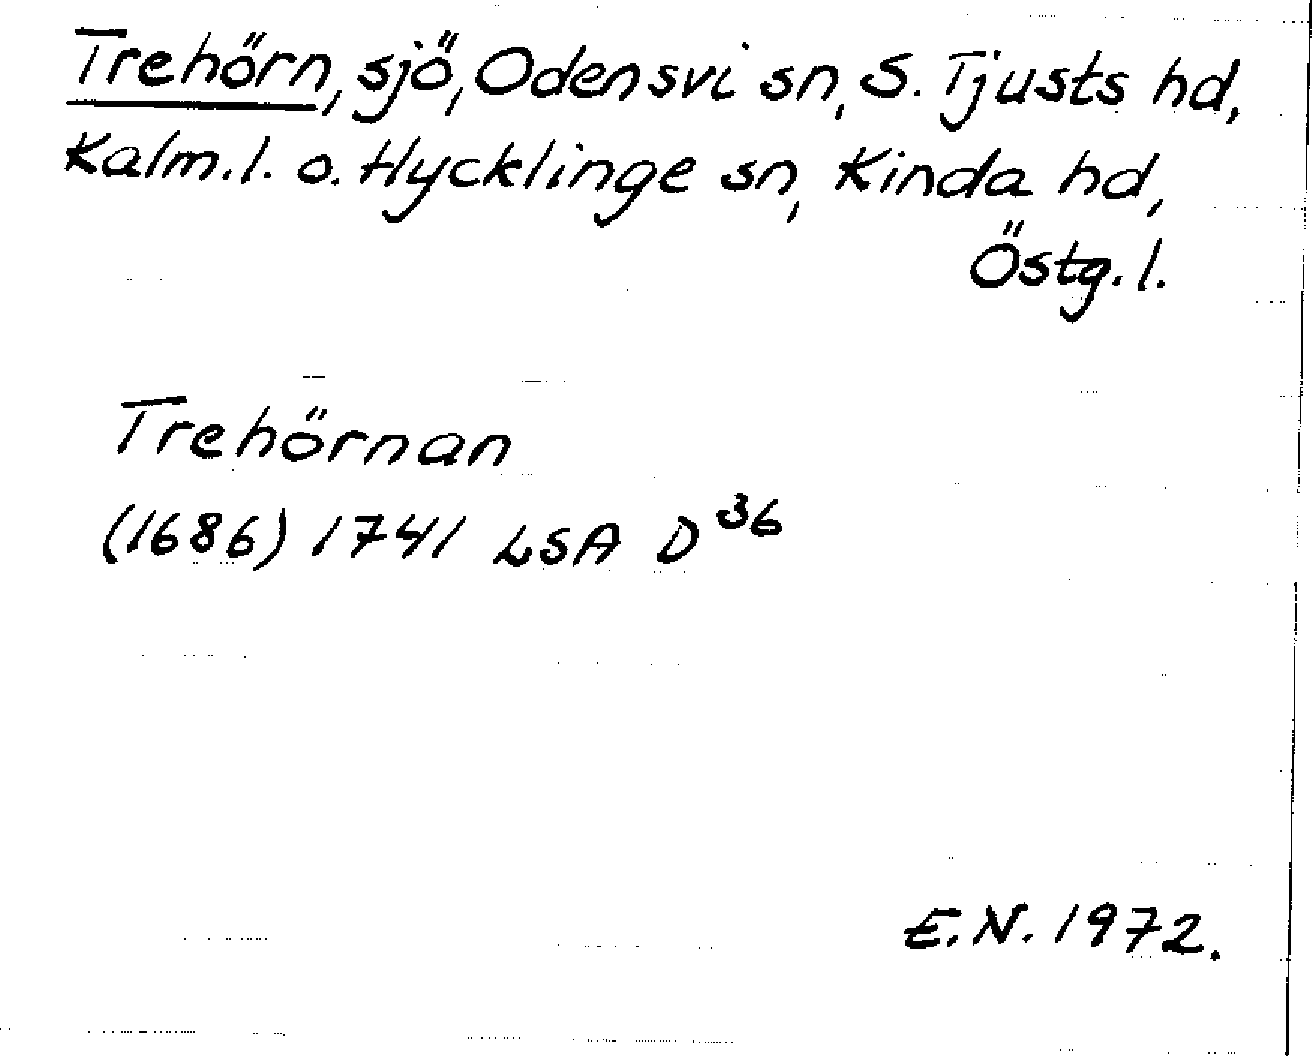 Trehörn, sjö, Odensvi sn, S. Tjusts hd,
Kalm.l. o. Hycklinge sn, Kinda hd,
Östg.l.
Trehörnan
(1686) 1741 LSA D³⁶
E.N. 1972.